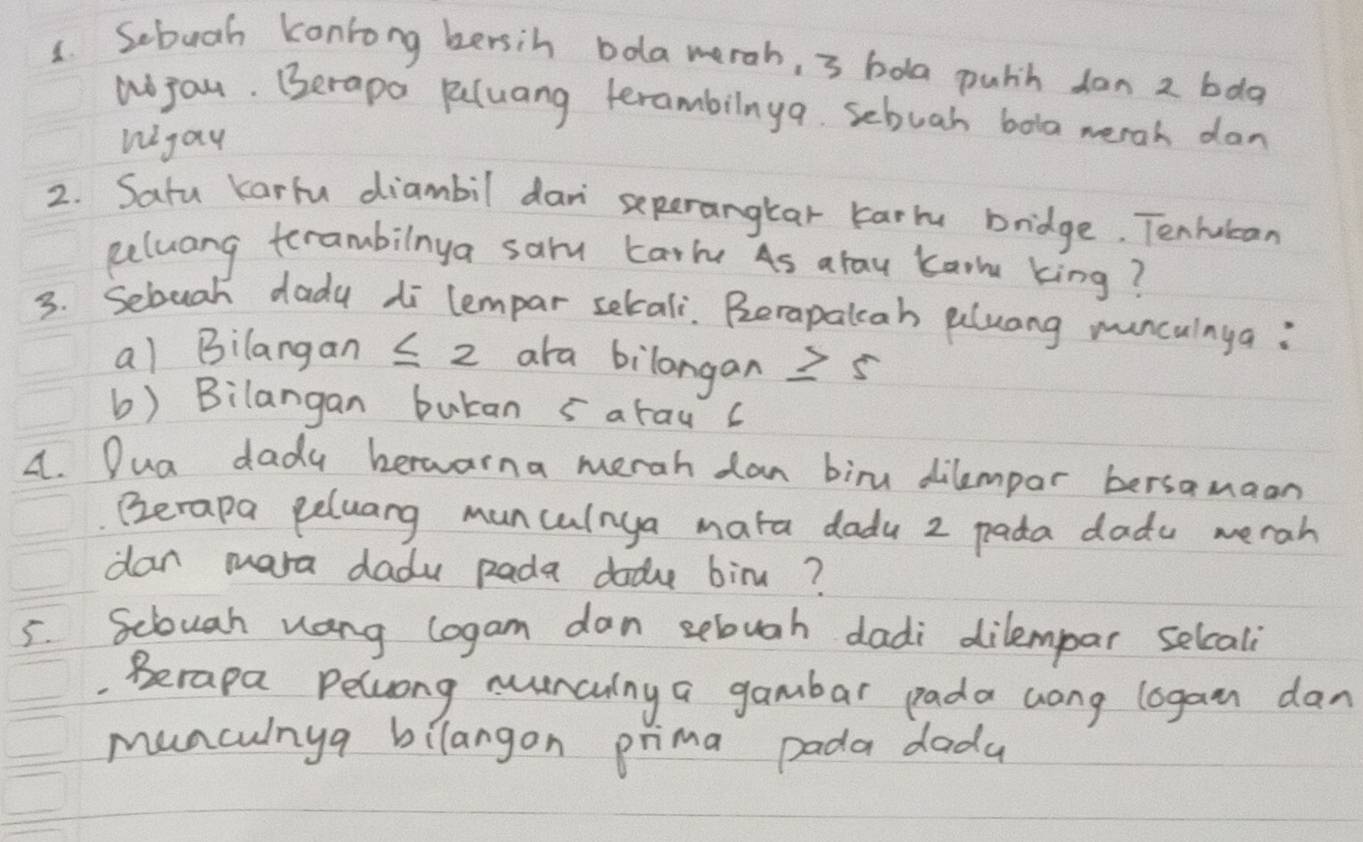 1. Sebuah kantong bersih bola merah, 3 bola putih dan 2 bola
hijau. Berapa peluang terambilnya sebuah bola merah dan
hijau
2. Satu kartu diambil dari seperangkat kartu bridge. Tentukan
peluang terambilnya satu kartu As atau kartu king?
3. Sebuah dadu di lempar sekali. Berapakah peluang munculnya :
a) Bilangan ≤ 2 ata bilangan ≥ 5
b) Bilangan bukan 5 atau 6
4. Dua dadu berwarna merah dan biru dilempar bersamaan
. Berapa peluang munculnya mata dadu 2 pada dadu merah
dan mata dadu pada dadu biru ?
5. Sebuah uang logam dan sebuah dadi dilempar sekali
. Berapa Peluong munculnya gambar pada uang logam dan
munculnya bilangan prima pada dadu